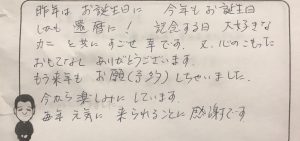 昨年は お誕生日に 今年も お誕生日
しかも 還暦に! 記念する日 大好きな
カニ と共に すごせ 幸です。又、心のこもった
おもてなし ありがとうございます。
もう来年も お願(予約)しちゃいました。
今から 楽しみに しています。
毎年 元気に 来られることに 感謝です